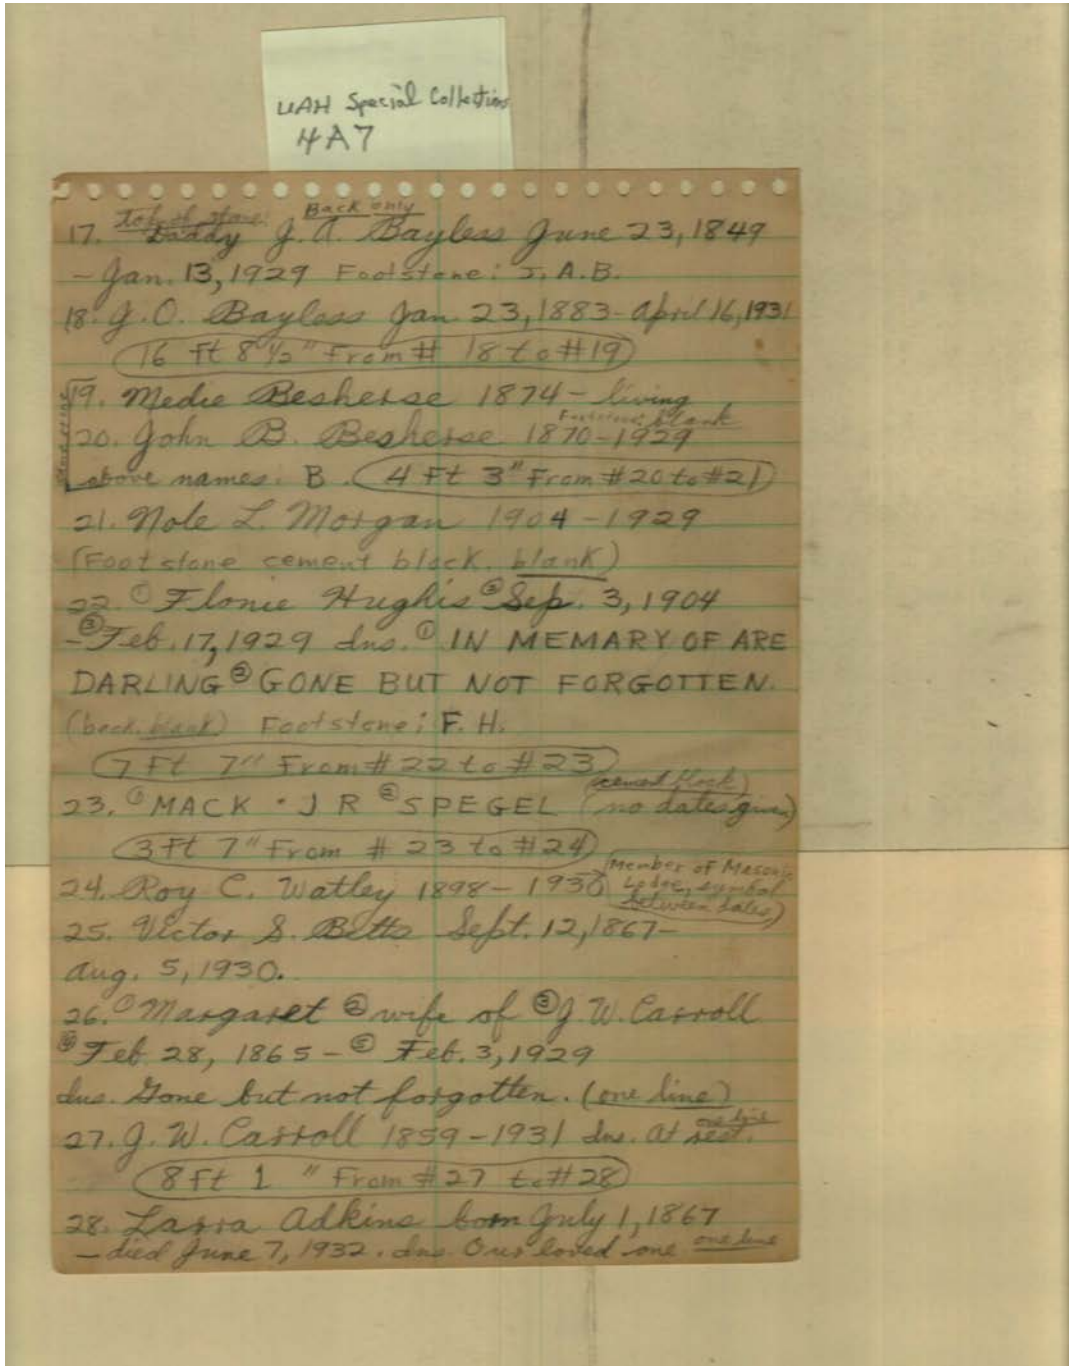 UAH Special Collections
4A7
Top of stone: Back only
17. Daddy J. A. Bayless June 23, 1849
- Jan. 13, 1929 Footstone: J. A. B.
18. J. O. Bayless Jan. 23, 1883 - April 16, 1931
16 ft 8 1/2" From # 18 to #19
19. Medie Besherse 1874 - living
Footstone: blank
20. John B. Besherse 1870-1929
above names. B. 4 Ft 3" From #20 to #21
21. Nole L. Morgan 1904-1929
(Footstone cement block. blank)
22. ① Flonie Hughis ② Sep. 3, 1904
- ③ Feb. 17, 1929 Ins. ① IN MEMARY OF ARE
DARLING ② GONE BUT NOT FORGOTTEN.
(back. blank) Footstone: F. H.
7 Ft 7" From # 22 to #23
(cement block)
23. ① MACK · J R ② SPEGEL (no dates given)
3 Ft 7" From # 23 to #24
24. Roy C. Watley 1898 - 1930 (Member of Masonic
Lodge, symbol
between dates)
25. Victor S. Betts Sept. 12, 1867-
Aug. 5, 1930.
26. ① Margaret ② wife of ③ J. W. Carroll
④ Feb 28, 1865 - ⑤ Feb. 3, 1929
Ins. Gone but not forgotten. (one line)
27. J. W. Carroll 1859-1931 Ins. At rest. one line
8 Ft 1 " From #27 to #28
28. Larra Adkins born July 1, 1867
- died June 7, 1932. Ins. Our loved one one line